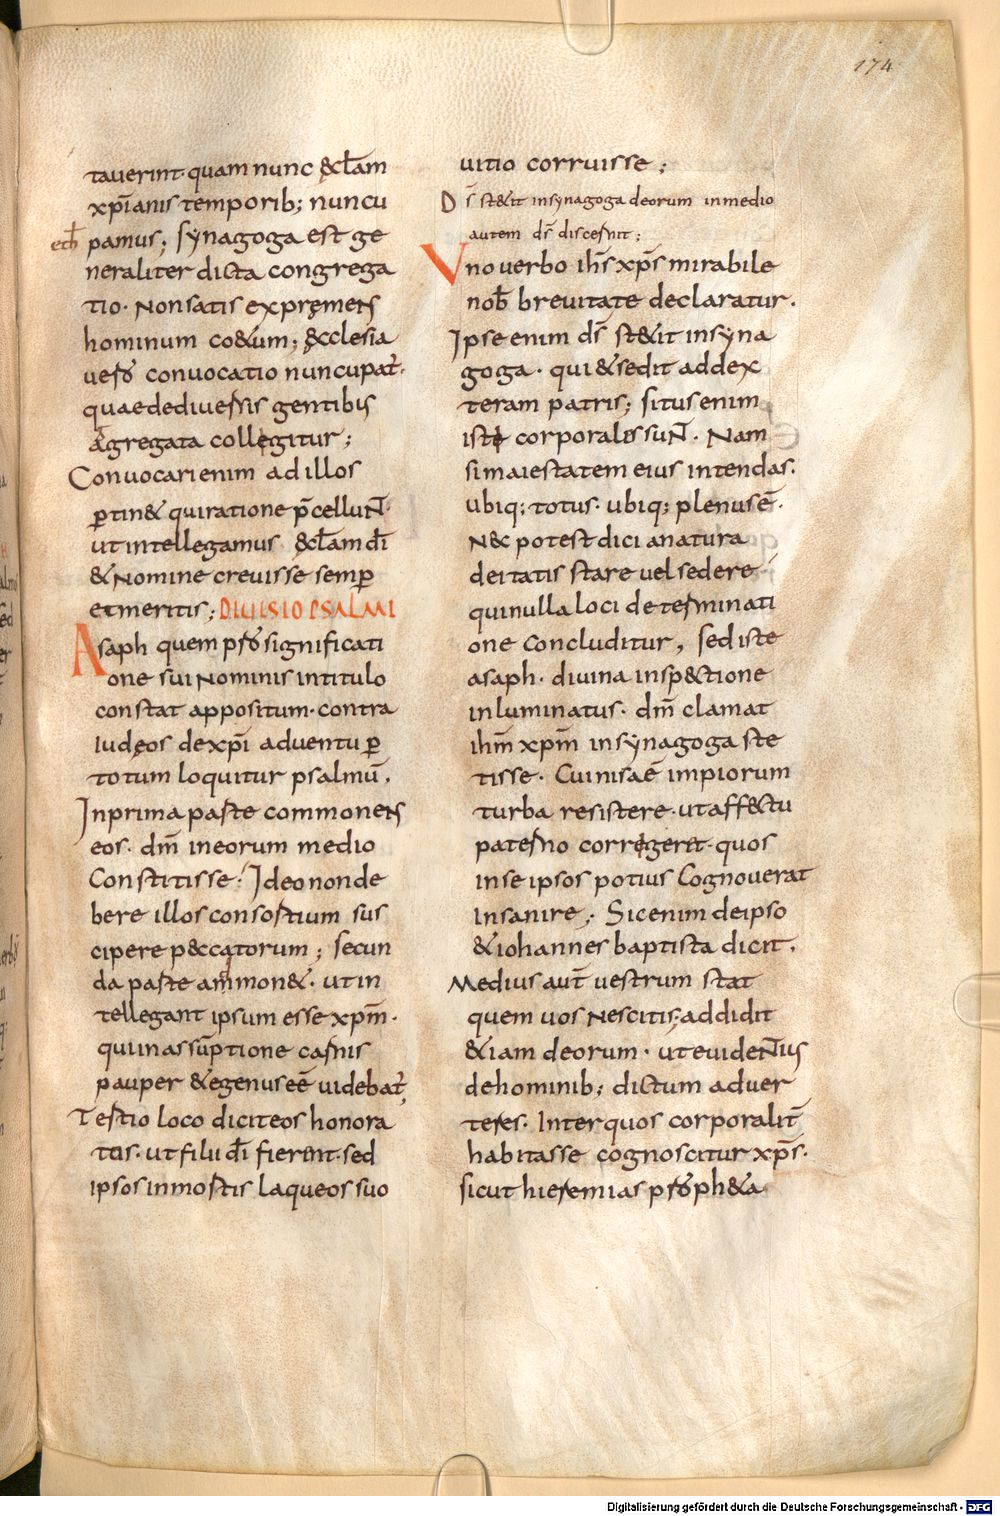 174
tauerint· quam nunc &cl̄am
xp̄ianis temporib; nuncu
pamus; synagoga est ge
neraliter dicta congrega
tio· Non satis expręmens
hominum co&um; ęcclesia
uero conuocatio nuncupat̄·
quae de diuersis gentibus
Agregata collegitur;
Conuocari enim ad illos
p̱tin& qui ratione p̄cellunt·
ut intellegamus &cl̄am dī
& Nomine creuisse semp̱
et meritis; DIVISIO PSALMI
Asaph quem pro significati
one sui Nominis in titulo
constat appositum· contra
Iudęos de xp̄i aduentu p̱
totum loquitur psalmū.
In prima parte commonens
eos· dm̄ in eorum medio
Constitisse· Ideo non de
bere illos consortium sus
cipere p&catorum; secun
da parte ammon&· ut in
tellegant ipsum esse xp̄m·
qui in assūptione carnis
pauper & egenus eē uidebat̄,
Tertio loco dicit eos honora
tos· ut filii dī fierent· sed
ipsos in mortis laqueos suo
uitio corruisse;
Ds̄ st&it in synagoga deorum in medio
autem ds̄ discernit;
Vno uerbo ih̄s xp̄s mirabile
nob̄ breuitate declaratur.
Ipse enim ds̄ st&it in syna
goga· qui & sedit ad dex
teram patris; situs enim
iste corporalis sunt· Nam
si maiestatem eius intendas.
ubiq; totus· ubiq; plenus ē·
N&c potest dici a natura
deitatis stare uel sedere·
qui nulla loci determinati
one concluditur, sed iste
asaph· diuina insp&ctione
inluminatus· dm̄ clamat
ih̄m xp̄m in synagoga ste
tisse· Cui nisa ē impiorum
turba resistere· ut affectu
paterno corrigeret· quos
in se ipsos potius Cognouerat
Insanire; Sic enim de ipso
& iohannes baptista dicit.
Medius aut̄ uestrum stat
quem uos Nescitis; addidit
& iam deorum· ut euidentius
de hominib; dictum aduer
teres· Inter quos corporalit̄
habitasse cognoscitur xp̄s·
sicut hieremias proph&a
Digitalisierung gefördert durch die Deutsche Forschungsgemeinschaft - DFG